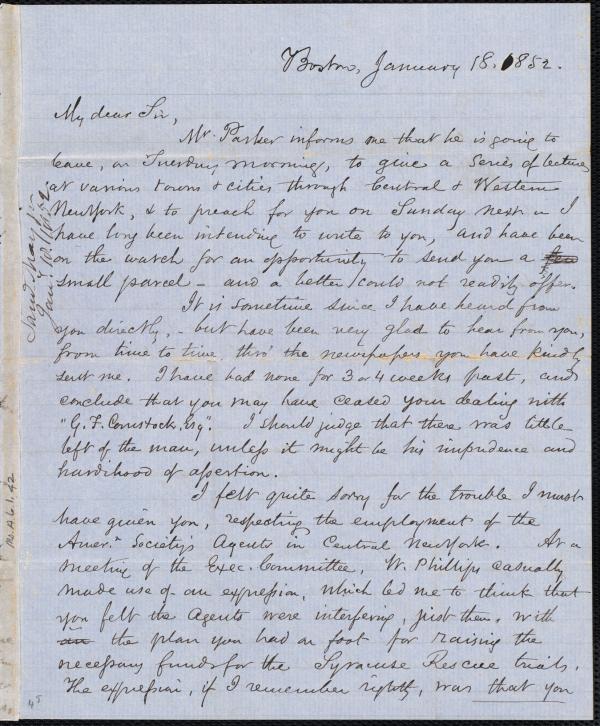 Boston, January 18. 1852.
My dear Sir,
Mr. Parker informs me that he is going to
leave, on Tuesday morning, to give a series of lectures
at various towns & cities through Central & Western
New York, & to preach for you on Sunday next. I
have long been intending to write to you, and have been
on the watch for an opportunity to send you a
small parcel – and a better I could not readily offer.
It is sometime since I have heard from
you directly, – but have been very glad to hear from you,
from time to time, thro' the newspapers you have kindly
sent me. I have had none for 3 or 4 weeks past, and
conclude that you may have ceased your dealing with
"G. F. Comstock, Esq." I should judge that there was little
left of the man, unless it might be his impudence and
hardihood of assertion.
I felt quite sorry for the trouble I must
have given you, respecting the employment of the
Amer.n Society's Agents in Central New York. At a
meeting of the Exec. Committee, W. Phillips casually
made use of an expression, which led me to think that
you felt the Agents were interfering, just then, with
the plan you had on foot for raising the
necessary funds for the Syracuse Rescue trials.
The expression, if I remember rightly, was that you
Saml May Jr.
Jan. 18. 1852
Ms.A.6.1.42
45